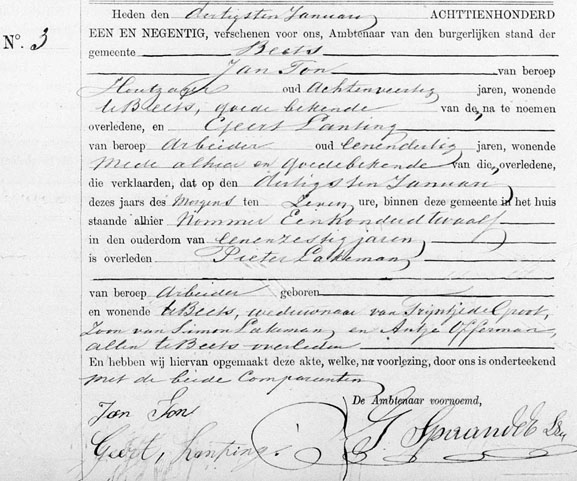 Nº. 3
Heden den dertigsten Januari ACHTTIENHONDERD
EEN EN NEGENTIG, verschenen voor ons, Ambtenaar van den burgerlijken stand der
gemeente Beets
Jan Ton van beroep
Houtzager oud Achtenveertig jaren, wonende
te Beets, goede bekende van de, na te noemen
overledene, en Geert Lanting
van beroep Arbeider oud eenendertig jaren, wonende
mede alhier en goede bekende van die, overledene,
die verklaarden, dat op den dertigsten Januari
dezes jaars des Morgens ten Zeven ure, binnen deze gemeente in het huis
staande alhier Nommer Eenhonderd twaalf
in den ouderdom van eenenzestig jaren
is overleden Pieter Lakeman
van beroep Arbeider geboren
en wonende te Beets, weduwnaar van Trijntje de Groot,
Zoon van Simon Lakeman, en Antje Offerman,
allen te Beets overleden
En hebben wij hiervan opgemaakt deze akte, welke, na voorlezing, door ons is onderteekend
met de beide Comparanten
De Ambtenaar voornoemd,
Jan Ton
Geert Lanting